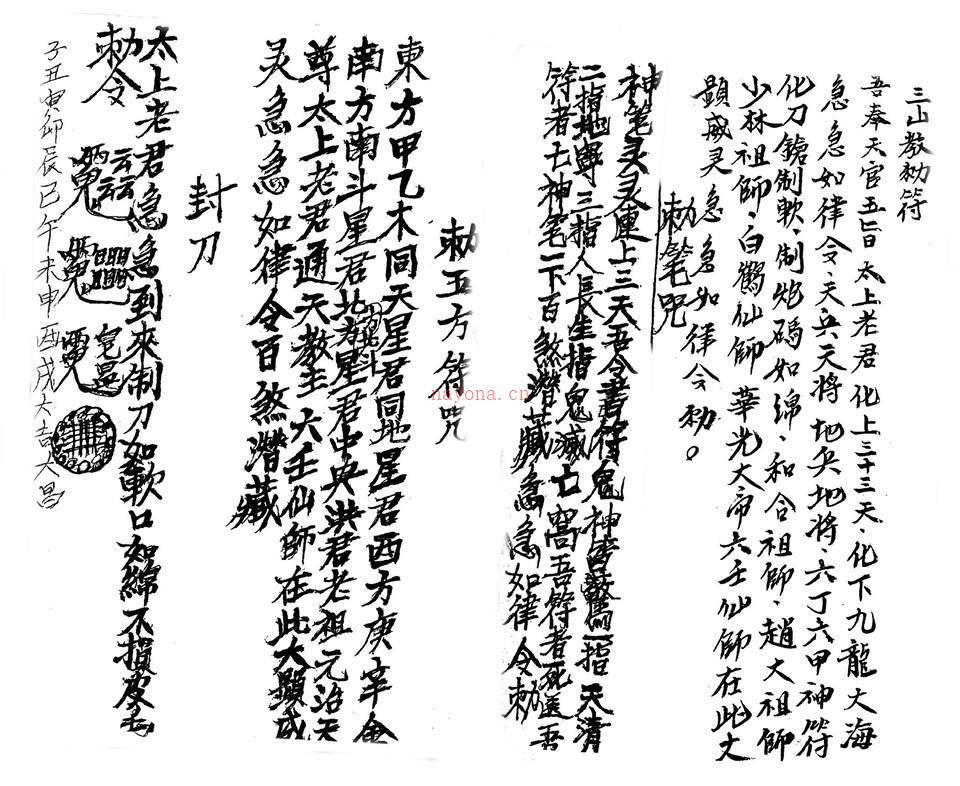 三山教勅符
吾奉天官五旨太上老君化上三十三天、化下九龍大海
急急如律令、天兵天將地兵地將、六丁六甲神符
化刀鎗制軟、制炮碼如綿、和合祖師、趙大祖師
少林祖師、白鶴仙師華光大帝六壬仙師在此大
顕威灵急急如律令勅。
勅筆咒
神笔灵灵運上三天吾令書符鬼神皆驚一指天清
二指地寧三指人長生指鬼滅亡窩吾符者死逆吾
符者亡神笔一下百煞潜藏急急如律令勅
勅五方符咒
東方甲乙木同天星君同地星君西方庚辛金
南方南斗星君北方星君中央洪君老祖元治天
尊太上老君通天教主六壬仙師在此大顕威
灵急急如律令百煞潜藏
封刀
太上老君急急到來制刀如軟口如綿不損皮毛
勅令
子丑寅卯辰巳午未申酉戌大吉大昌
nayona.cn